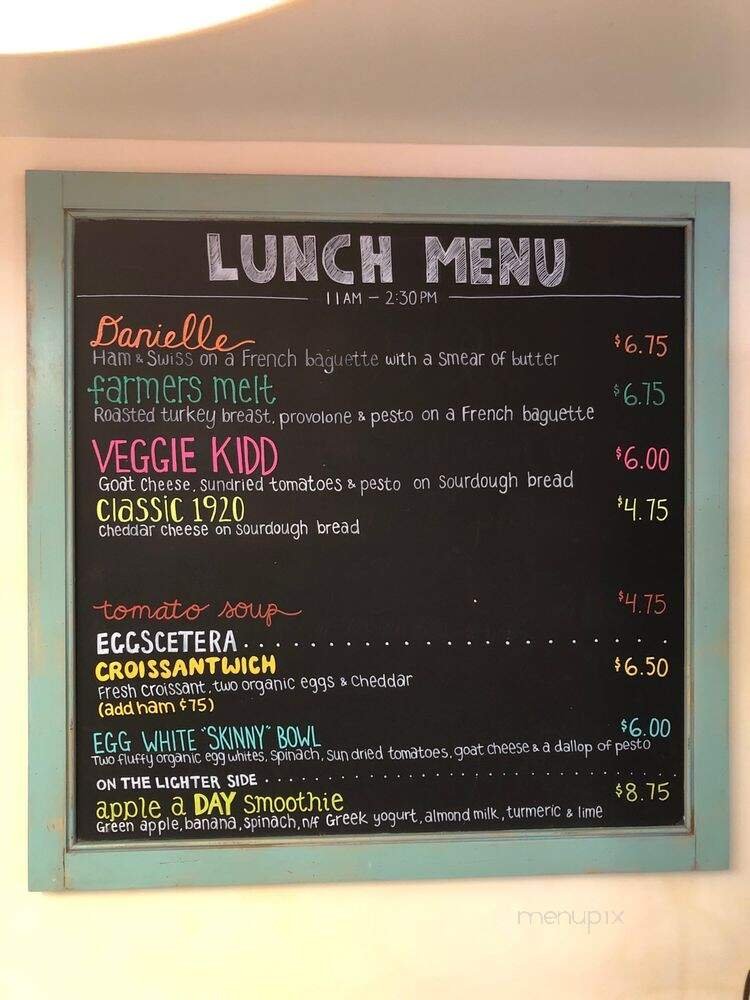 LUNCH MENU
11AM - 2:30PM
Danielle $6.75
Ham & Swiss on a French baguette with a smear of butter
farmers melt $6.75
Roasted turkey breast, provolone & pesto on a French baguette
VEGGIE KIDD $6.00
Goat cheese, sundried tomatoes & pesto on sourdough bread
classic 1920 $4.75
cheddar cheese on sourdough bread
tomato soup $4.75
EGGSCETERA
CROISSANTWICH $6.50
Fresh croissant, two organic eggs & cheddar
(add ham ¢75)
EGG WHITE "SKINNY" BOWL $6.00
Two fluffy organic egg whites, spinach, sun dried tomatoes, goat cheese & a dallop of pesto
ON THE LIGHTER SIDE
apple a DAY Smoothie $8.75
Green apple, banana, spinach, n/f Greek yogurt, almond milk, turmeric & lime
menupix